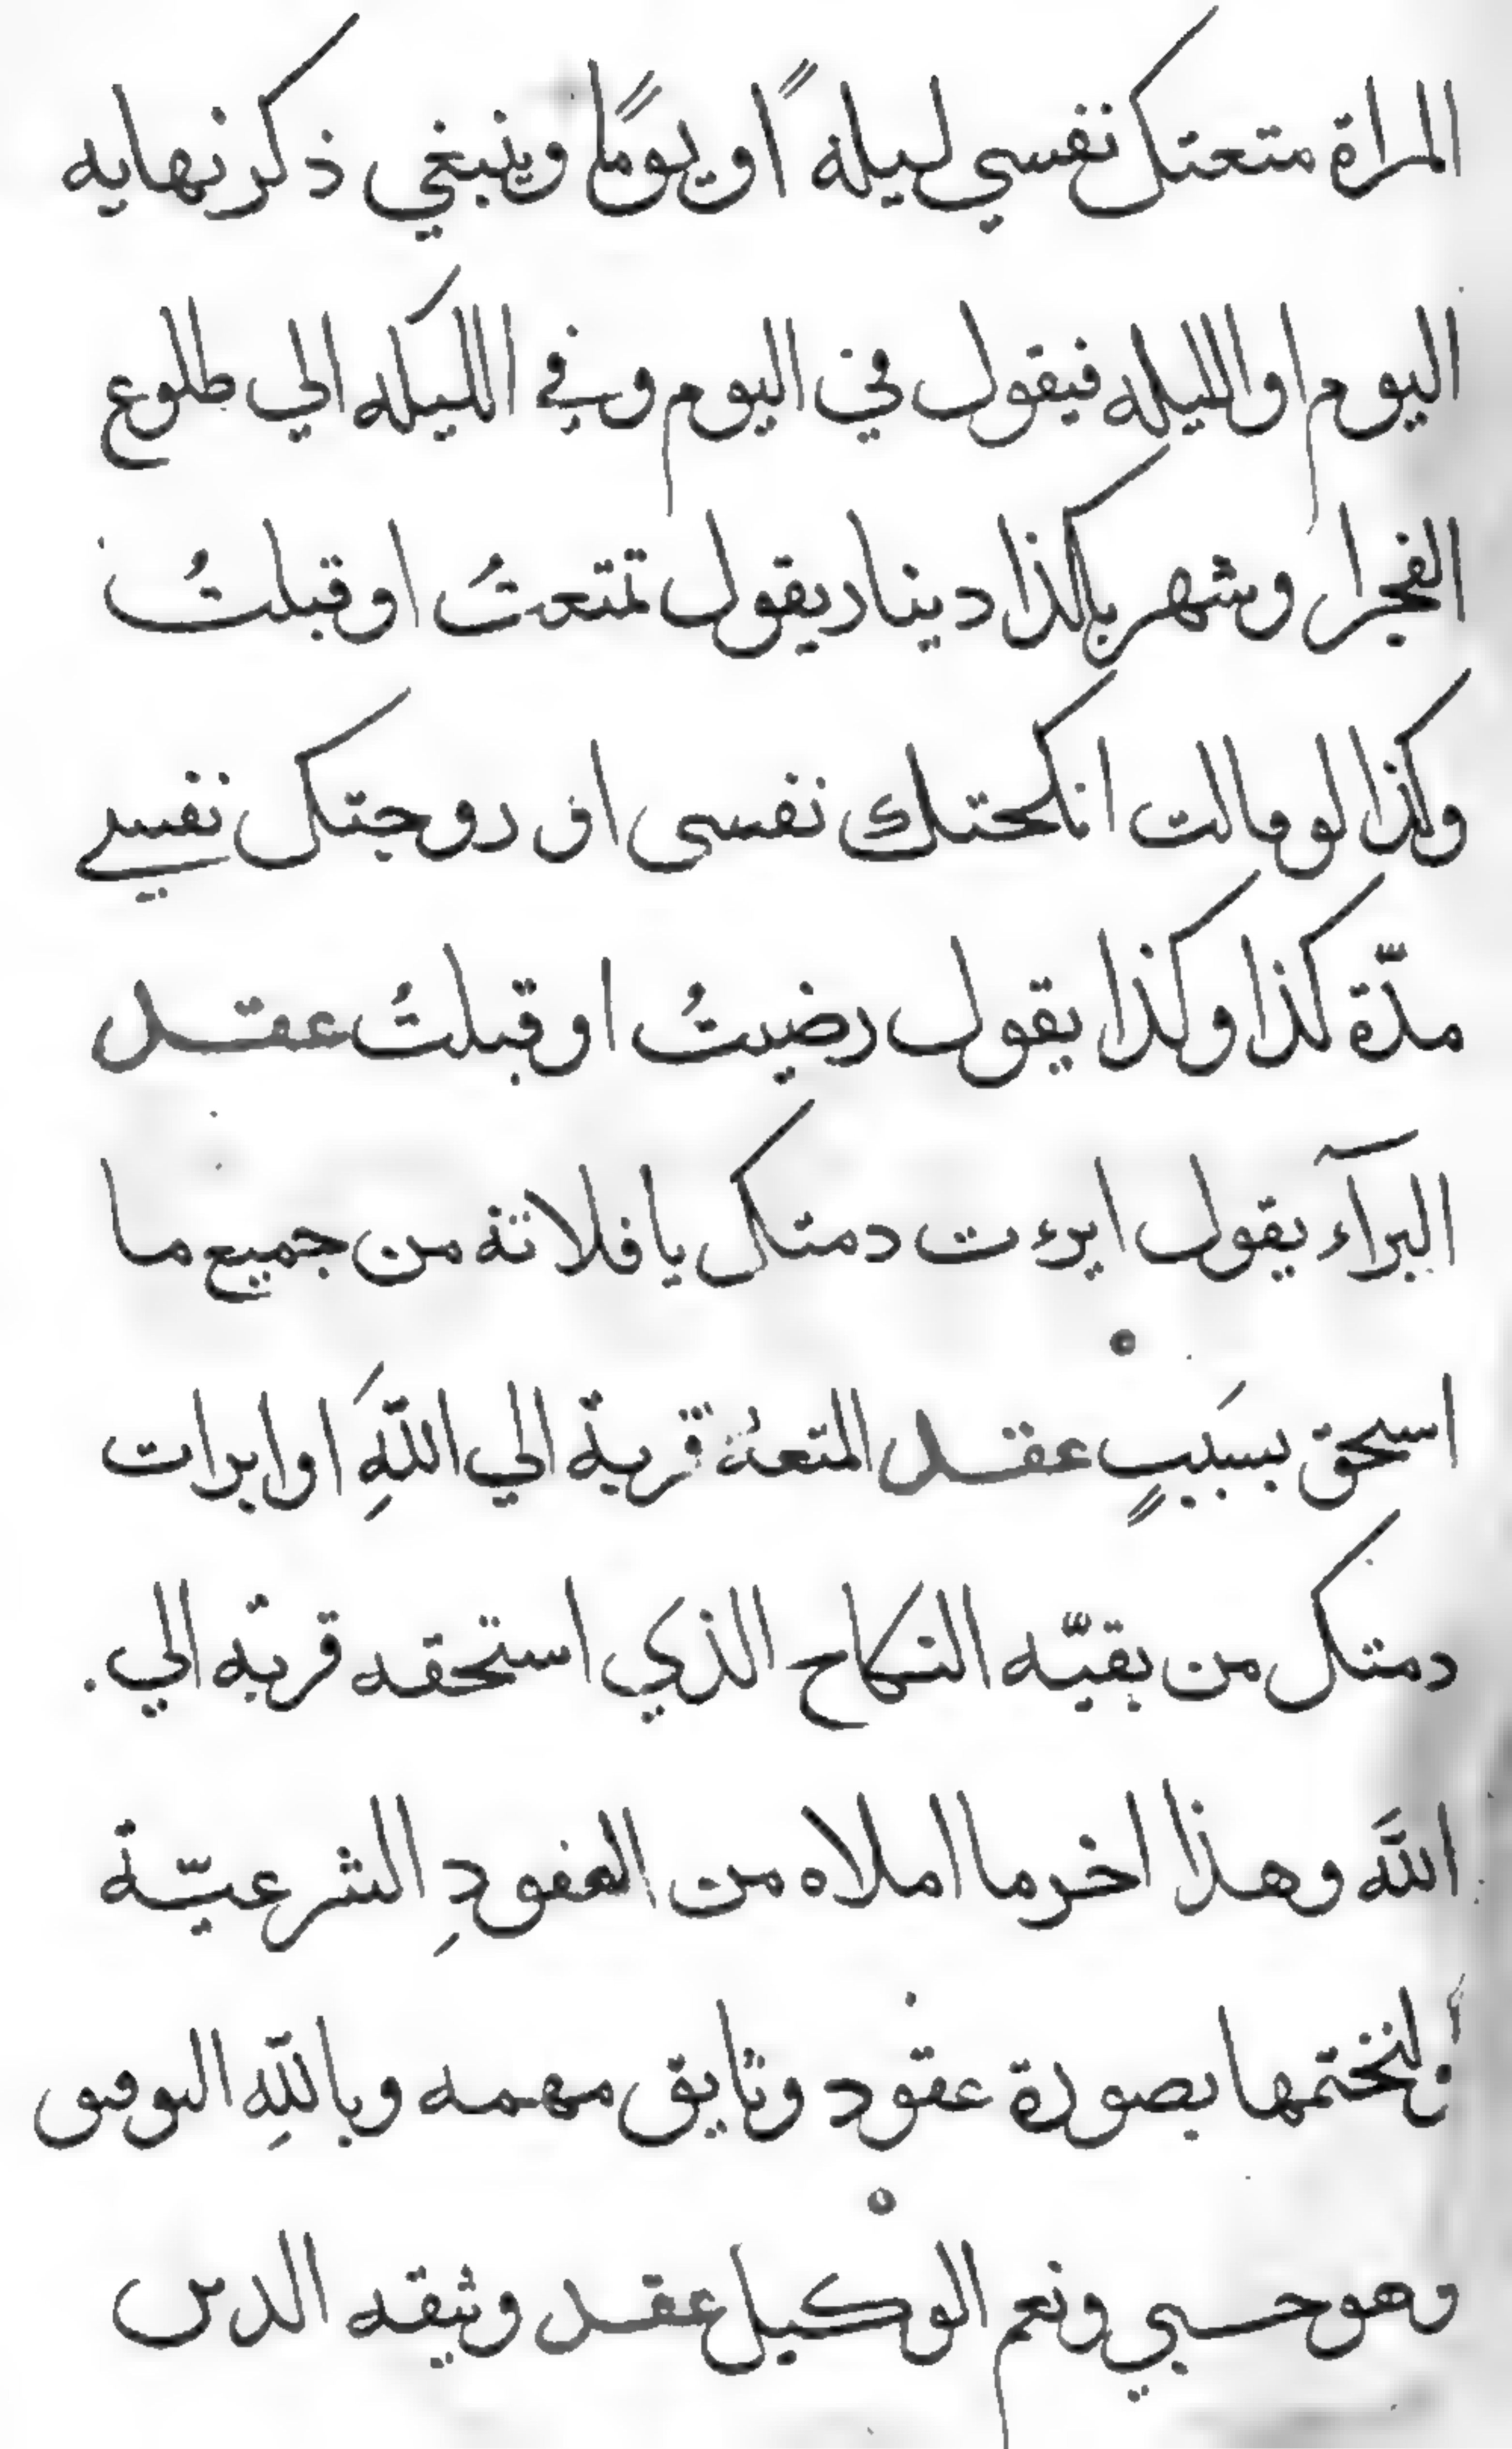 المراة متعتك نفسي ليلهً او يومًا وينبغي ذكر نهايه
اليوم او الليله فيقول في اليوم وفي الليله الي طلوع
الفجر او شهر بكذا دينار يقول تمتعتُ او قبلتُ
وكذا لو قالت انكحتك نفسى او زوجتك نفسي
مدّة كذا وكذا يقول رضيتُ او قبلتُ عقد
البرآء يقول ابرءت دمتك يا فلانة من جميع ما
استحق بسَببٍ عقد المتعة قربة الي اللَّهِ او ابرات
دمتك من بقيّه النكاح الذي استحقه قربة الي
اللَّه وهذا اخر ما املاه من العقودِ الشرعيّة
ولنختمها بصورة عقود وثايق مهمه وباللّهِ التوفيق
وهو حسبي ونعم الوكيل عقد وثيقه الدين